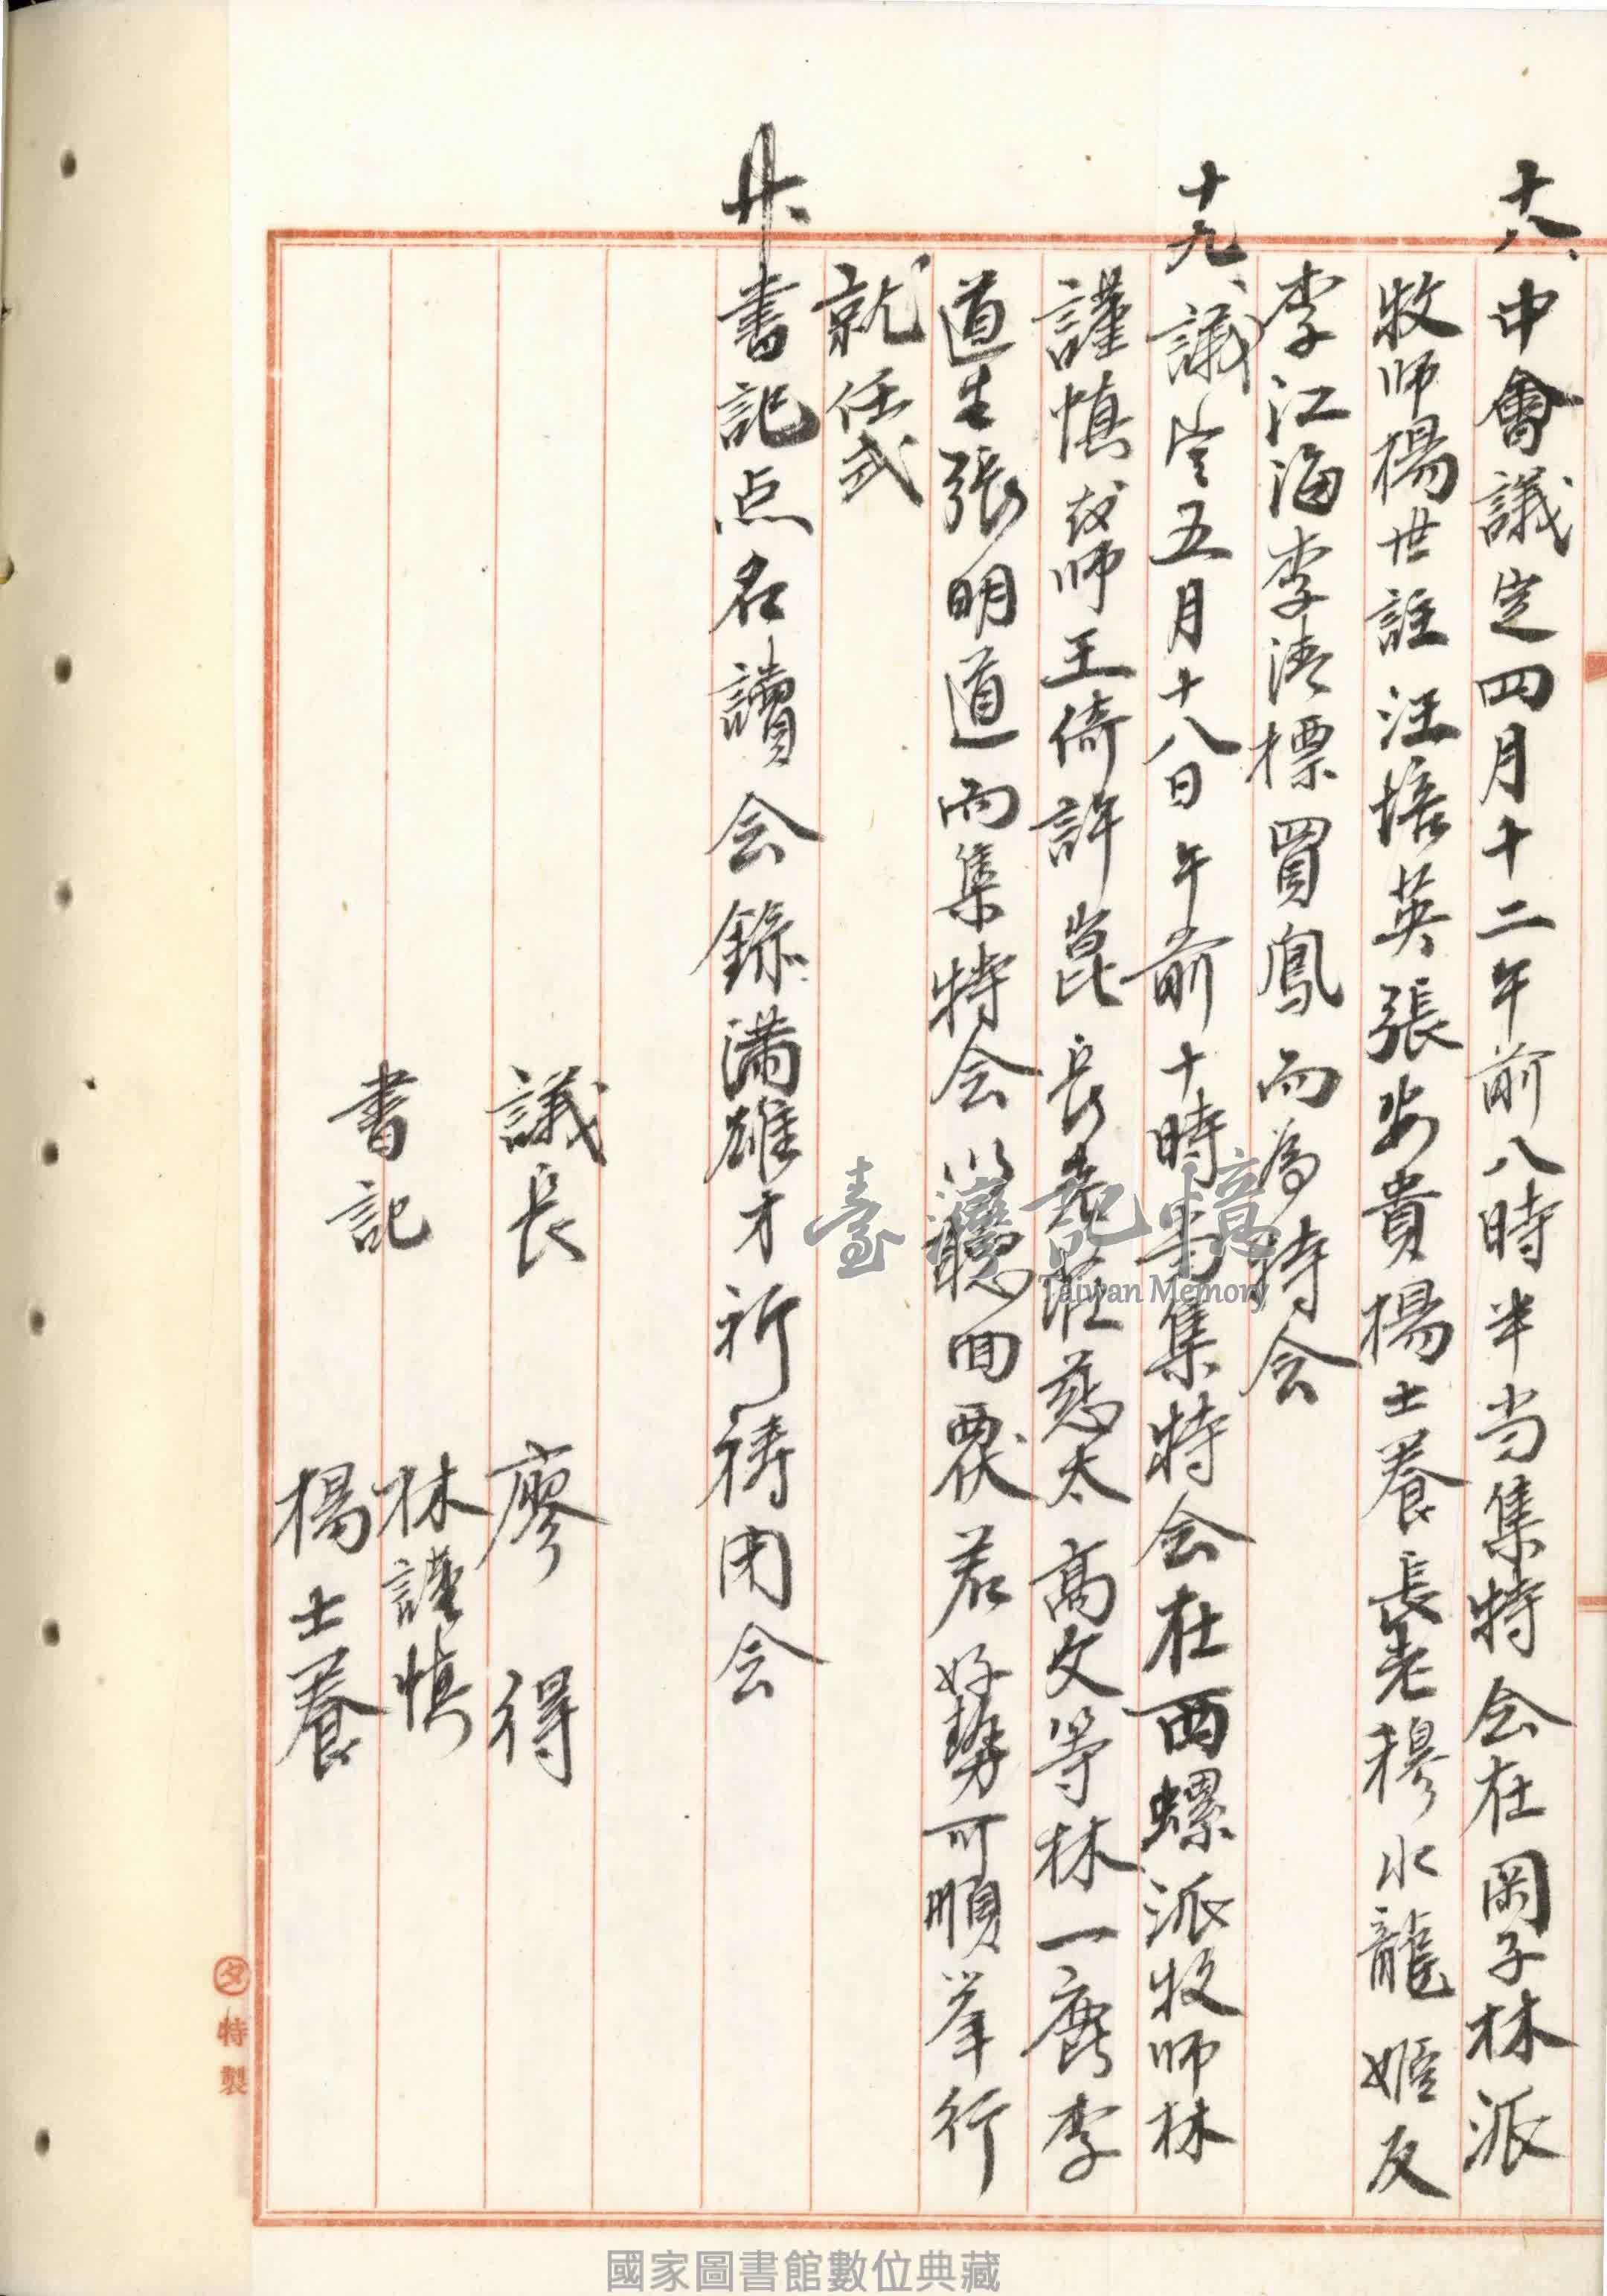 十八、中會議定四月十二午前八時半当集特会在岡子林派
牧師楊世註汪培英張安貴楊士養長老穆水龍姬反
李江海李清標買鳳而為特会
十九、議定五月十八日午前十時当集特会在西螺派牧師林
謹慎教師王倚許崑長老莊慈太高文等林一鹿李
道生張明道而集特会以聽回覆若好勢可順举行
就任式
廿、書記点名讀会錄滿雄才祈禱闭会
議長 廖得
書記 林謹慎
楊士養
タ特製
臺灣記憶
Taiwan Memory
國家圖書館數位典藏